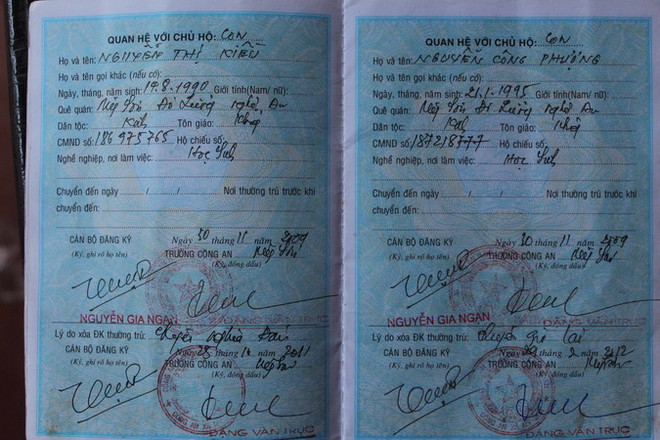 QUAN HỆ VỚI CHỦ HỘ: CON
Họ và tên: NGUYỄN THỊ KIỀU
Họ và tên gọi khác (nếu có):
Ngày, tháng, năm sinh: 19.8.1990 Giới tính(Nam/ nữ):
Quê quán: Mỹ Sơn Đô Lương Nghệ An
Dân tộc: Kinh Tôn giáo: Không
CMND số: 186975765 Hộ chiếu số:
Nghề nghiệp, nơi làm việc: Học Sinh
Chuyển đến ngày / / Nơi thường trú trước khi
chuyển đến:
Ngày 30 tháng 11 năm 2009
CÁN BỘ ĐĂNG KÝ TRƯỞNG CÔNG AN Mỹ Sơn
(Ký, ghi rõ họ tên) (Ký, đóng dấu)
NGUYỄN GIA NGAN ĐẶNG VĂN TRỰC
Lý do xóa ĐK thường trú: Chuyển Nghĩa Đàn
Ngày 25 tháng năm 2011
CÁN BỘ ĐĂNG KÝ TRƯỞNG CÔNG AN Mỹ Sơn
(Ký, ghi rõ họ tên) (Ký, đóng dấu)
ĐẶNG VĂN TRỰC
QUAN HỆ VỚI CHỦ HỘ: CON
Họ và tên: NGUYỄN CÔNG PHƯỢNG
Họ và tên gọi khác (nếu có):
Ngày, tháng, năm sinh: 21.1.1995 Giới tính(Nam/ nữ):
Quê quán: Mỹ Sơn Đô Lương Nghệ An
Dân tộc: Kinh Tôn giáo: Không
CMND số: 187218777 Hộ chiếu số:
Nghề nghiệp, nơi làm việc: Học Sinh
Chuyển đến ngày / / Nơi thường trú trước khi
chuyển đến:
Ngày 30 tháng 11 năm 2009
CÁN BỘ ĐĂNG KÝ TRƯỞNG CÔNG AN Mỹ Sơn
(Ký, ghi rõ họ tên) (Ký, đóng dấu)
NGUYỄN GIA NGAN ĐẶNG VĂN TRỰC
Lý do xóa ĐK thường trú: Chuyển Gia Lai
Ngày tháng 2 năm 2012
CÁN BỘ ĐĂNG KÝ TRƯỞNG CÔNG AN Mỹ Sơn
(Ký, ghi rõ họ tên) (Ký, đóng dấu)
ĐẶNG VĂN TRỰC